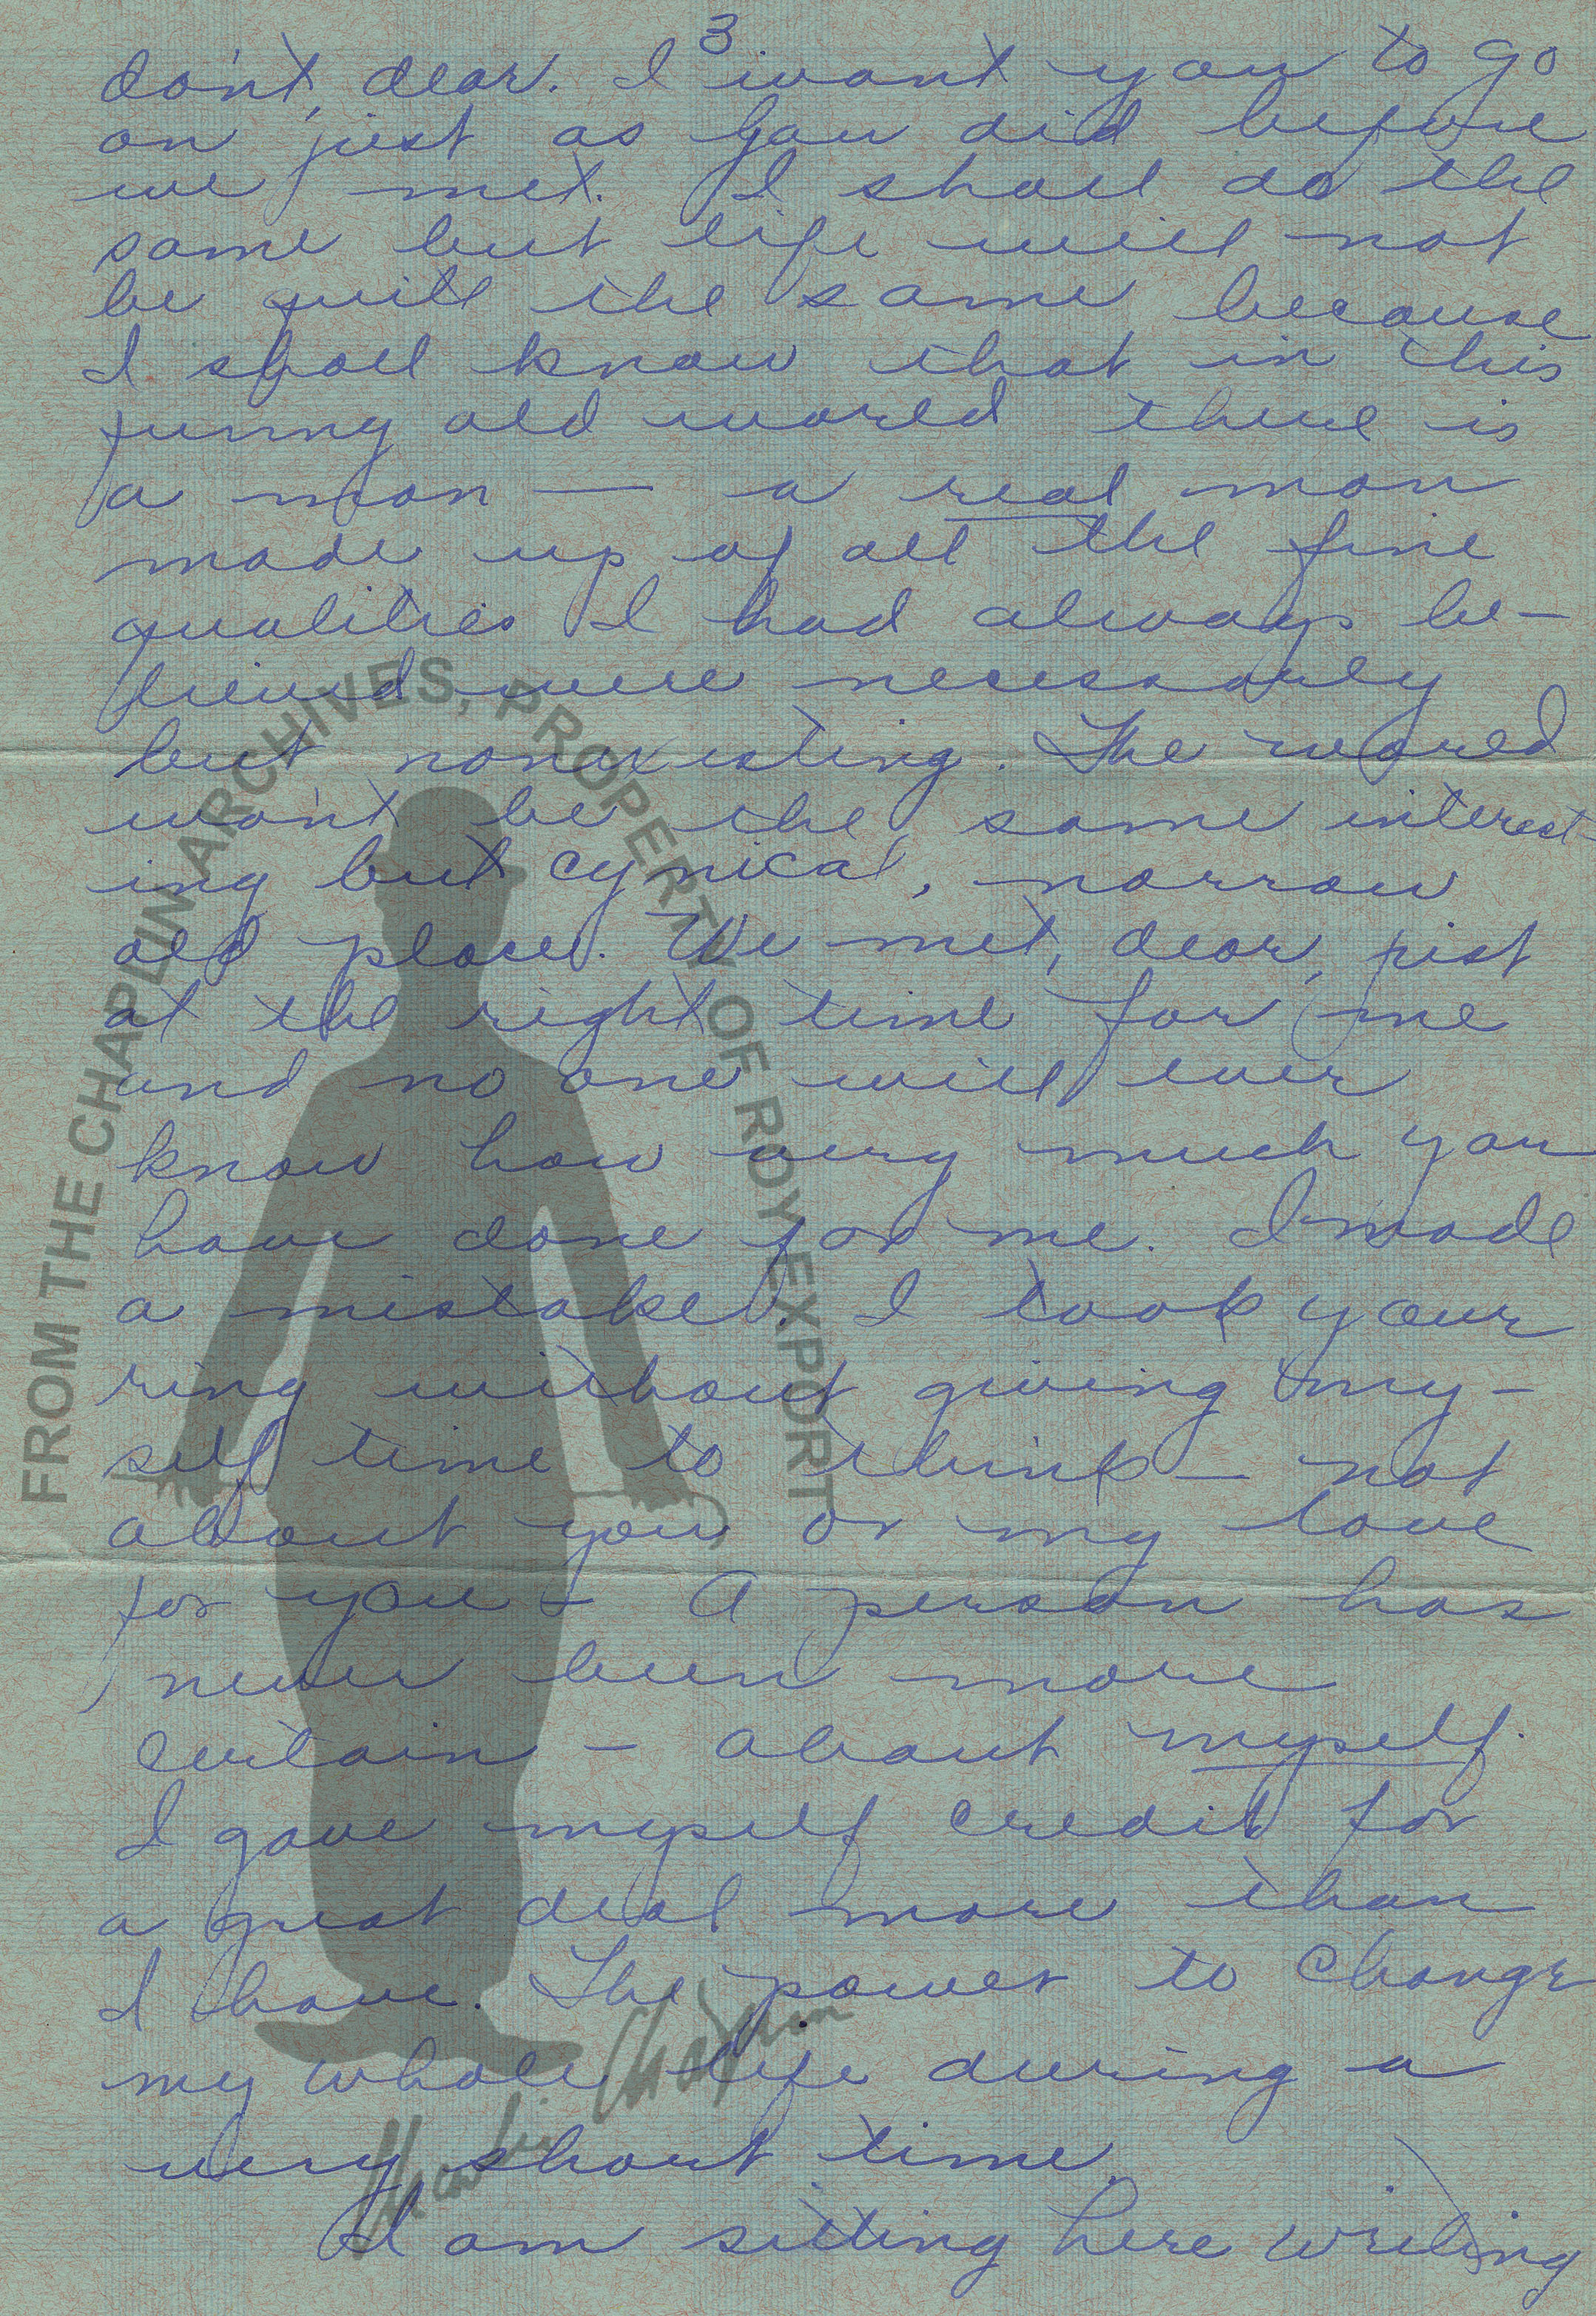 3.
don't, dear. I want you to go
on just as you did before
we met. I shall do the
same but life will not
be quite the same because
I shall know that in this
funny old world there is
a man — a real man
made up of all the fine
qualities I had always be-
lieved were necessarily
but nonexisting. The world
won't be the same interest-
ing but cynical, narrow
old place. We met, dear, just
at the right time for me
and no one will ever
know how very much you
have done for me. I made
a mistake. I took your
ring without giving my-
self time to think — not
about you or my love
for you — A person has
never been more
certain — about myself.
I gave myself credit for
a great deal more than
I have. The power to change
my whole life during a
very short time.
I am sitting here writing
FROM THE CHAPLIN ARCHIVES, PROPERTY OF ROY EXPORT
Charlie Chaplin